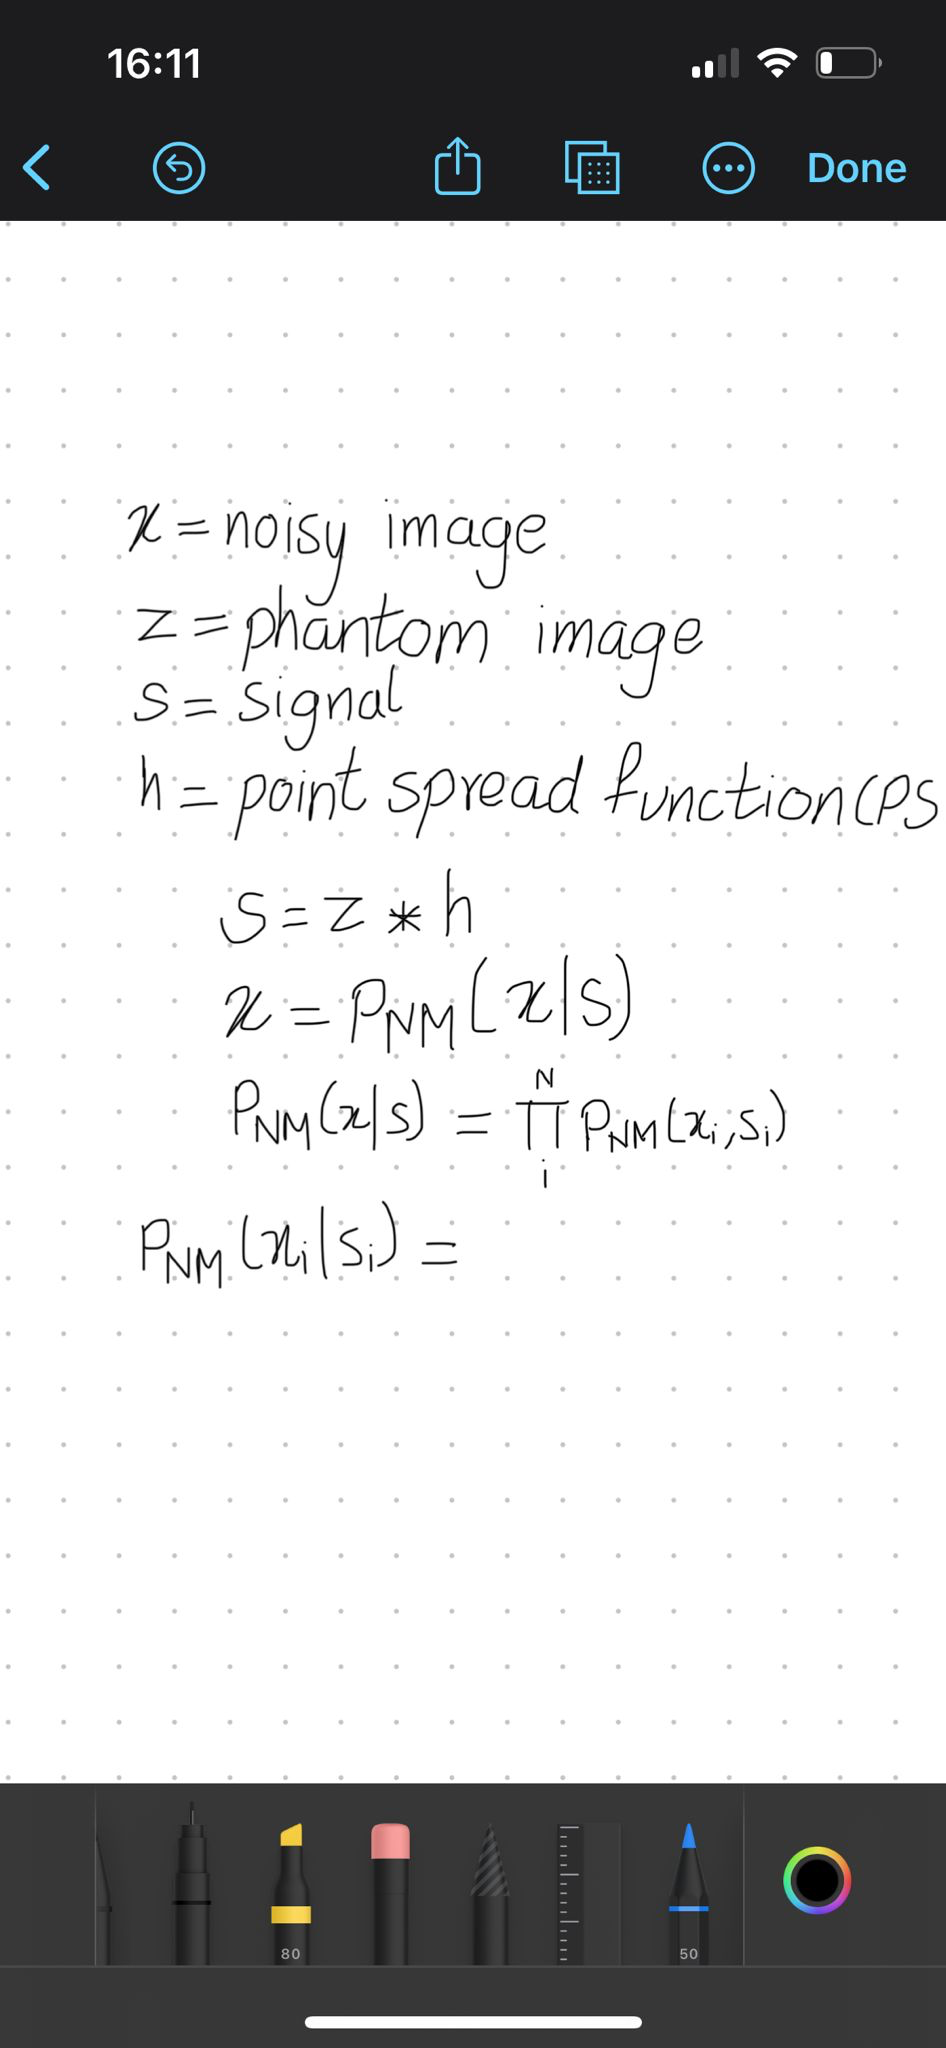 16:11
Done
x = noisy image
z = phantom image
s = signal
h = point spread function (PS
s = z * h
x = P_NM(x|s)
P_NM(x|s) = ∏_i^N P_NM(x_i, s_i)
P_NM(x_i|s_i) =
80
50